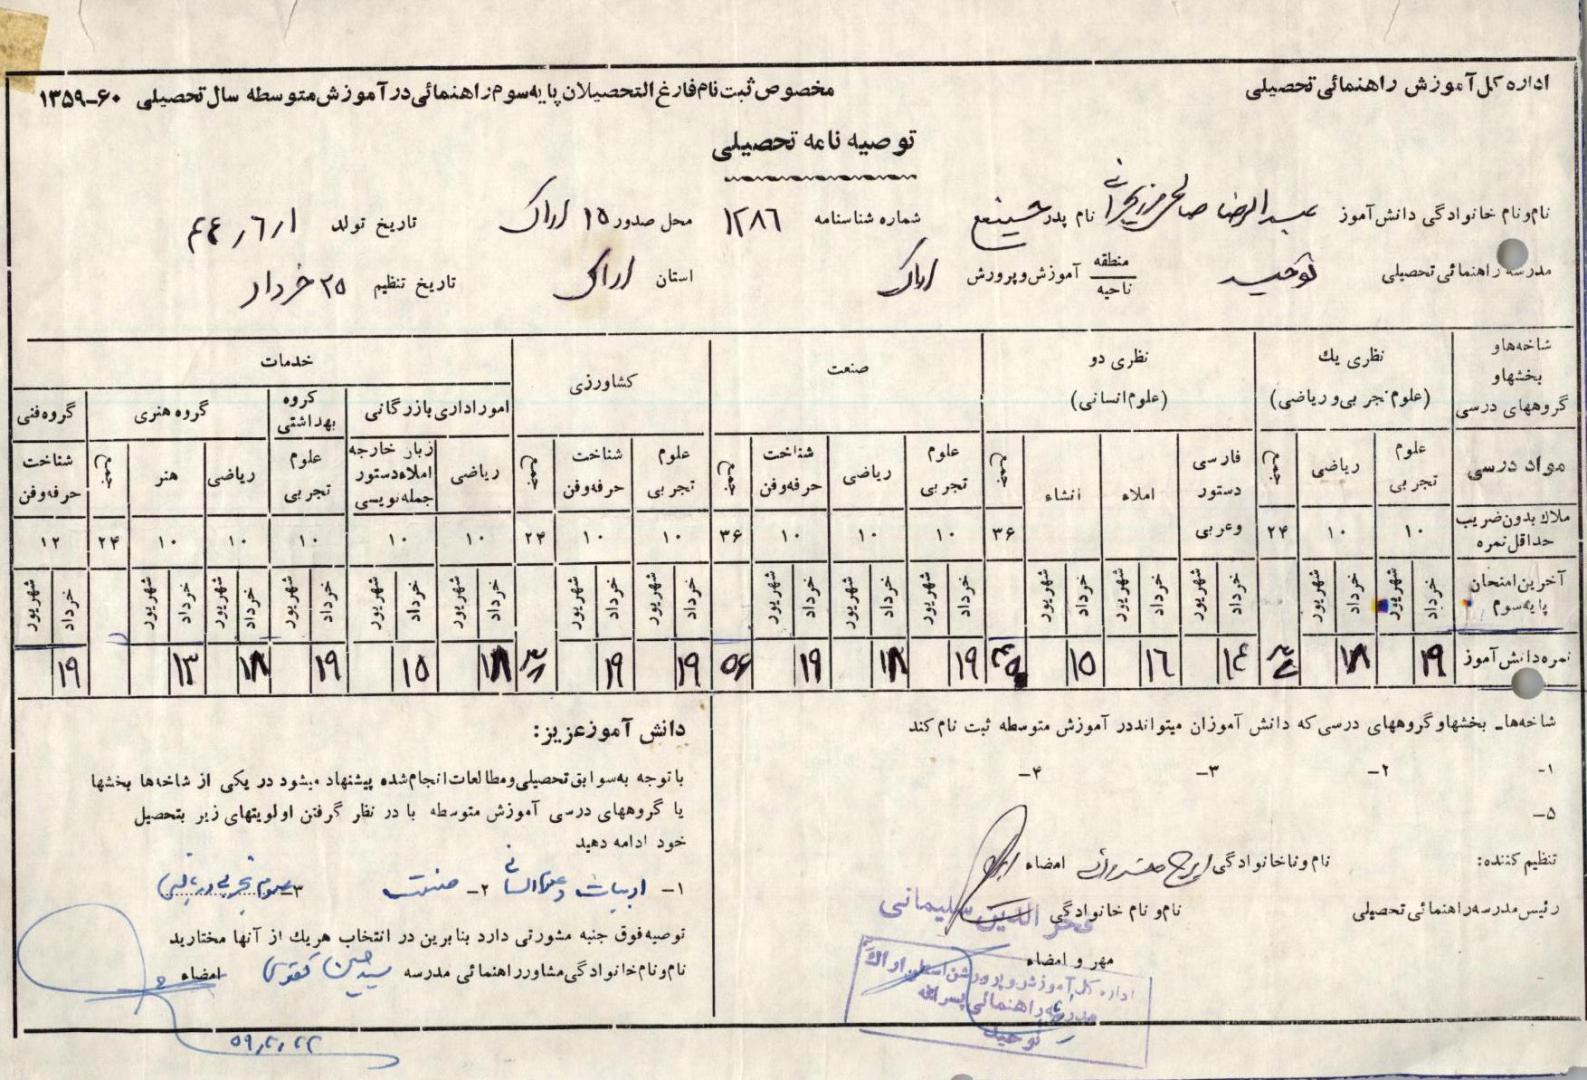 اداره کل آموزش راهنمائی تحصیلی
مخصوص ثبت نام فارغ التحصیلان پایه سوم راهنمائی در آموزش متوسطه سال تحصیلی ۶۰-۱۳۵۹
توصیه نامه تحصیلی
نام و نام خانوادگی دانش آموز عبدالرضا صالحی نام پدر شماره شناسنامه ۱۲۸۶ محل صدور ۱۵ اراک تاریخ تولد ۱ر۶ر۴۴
مدرسه راهنمائی تحصیلی توحید منطقه ناحیه آموزش و پرورش اراک استان اراک تاریخ تنظیم ۲۵ خرداد
شاخه‌ها و بخشها و گروههای درسی
نظری یک (علوم تجربی و ریاضی) نظری دو (علوم انسانی) صنعت کشاورزی خدمات
امور اداری بازرگانی گروه بهداشتی گروه هنری گروه فنی
مواد درسی علوم تجربی ریاضی جمع فارسی دستور و عربی املاء انشاء جمع علوم تجربی ریاضی شناخت حرفه و فن جمع علوم تجربی شناخت حرفه و فن جمع ریاضی زبان خارجه املاء دستور جمله نویسی علوم تجربی ریاضی هنر جمع شناخت حرفه و فن
ملاک بدون ضریب حداقل نمره ۱۰ ۱۰ ۲۴ ۳۶ ۱۰ ۱۰ ۱۰ ۳۶ ۱۰ ۱۰ ۲۴ ۱۰ ۱۰ ۱۰ ۱۰ ۱۰ ۲۴ ۱۲
آخرین امتحان پایه سوم خرداد شهریور خرداد شهریور خرداد شهریور خرداد شهریور خرداد شهریور خرداد شهریور خرداد شهریور خرداد شهریور خرداد شهریور خرداد شهریور خرداد شهریور خرداد شهریور خرداد شهریور خرداد شهریور خرداد شهریور خرداد شهریور
نمره دانش آموز ۱۹ ۱۸ ۱۴ ۱۶ ۱۵ ۴۵ ۱۹ ۱۸ ۱۹ ۵۶ ۱۹ ۱۹ ۱۸ ۱۵ ۱۹ ۱۸ ۱۳ ۱۹
شاخه‌ها- بخشها و گروههای درسی که دانش آموزان میتواند در آموزش متوسطه ثبت نام کند
۱- ۲- ۳- ۴-
۵-
تنظیم کننده: نام و نام خانوادگی ایرج امضاء
رئیس مدرسه راهنمائی تحصیلی نام و نام خانوادگی فخرالدین سلیمانی
مهر و امضاء
اداره کل آموزش و پرورش استان اراک
مدرسه راهنمائی پسرانه
توحید
دانش آموز عزیز:
با توجه به سوابق تحصیلی و مطالعات انجام شده پیشنهاد میشود در یکی از شاخه‌ها بخشها
یا گروههای درسی آموزش متوسطه با در نظر گرفتن اولویتهای زیر بتحصیل
خود ادامه دهید
۱- ادبیات و علوم انسانی ۲- صنعت ۳- علوم تجربی و ریاضی
توصیه فوق جنبه مشورتی دارد بنابرین در انتخاب هر یک از آنها مختارید
نام و نام خانوادگی مشاور راهنمائی مدرسه سید حسین تقوی امضاء